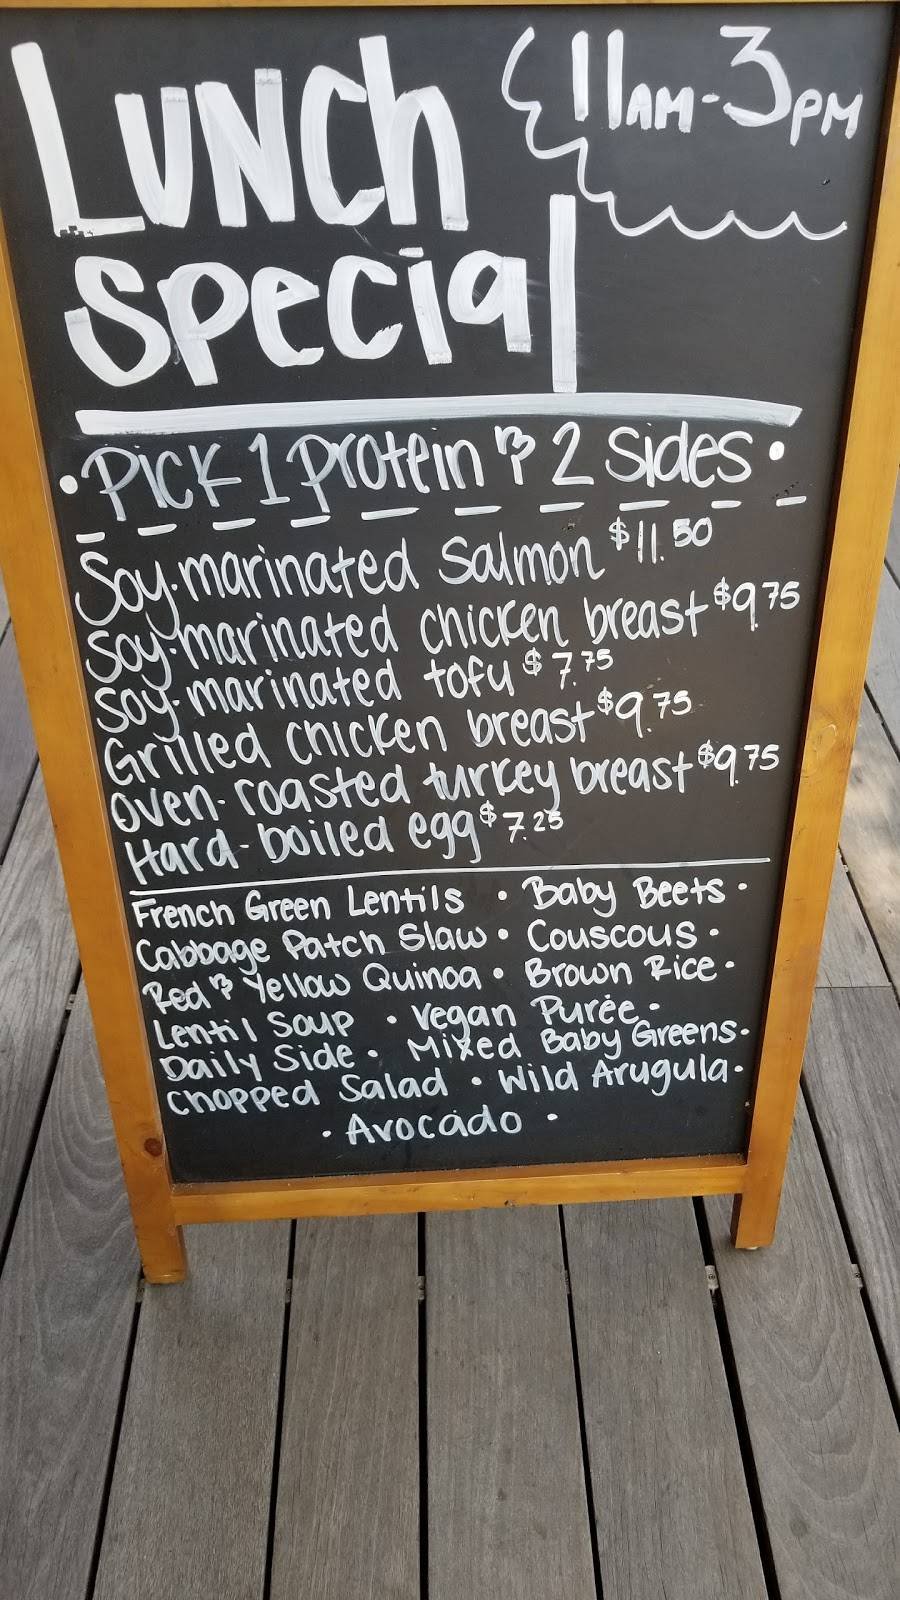 Lunch 11AM-3PM
Special
• Pick 1 protein & 2 sides •
Soy-marinated salmon $11.50
Soy-marinated chicken breast $9.75
Soy-marinated tofu $7.75
Grilled chicken breast $9.75
Oven-roasted turkey breast $9.75
Hard-boiled egg $7.25
French Green Lentils • Baby Beets •
Cabbage Patch Slaw • Couscous •
Red & Yellow Quinoa • Brown Rice •
Lentil Soup • Vegan Purée •
Daily Side • Mixed Baby Greens •
Chopped Salad • Wild Arugula •
• Avocado •